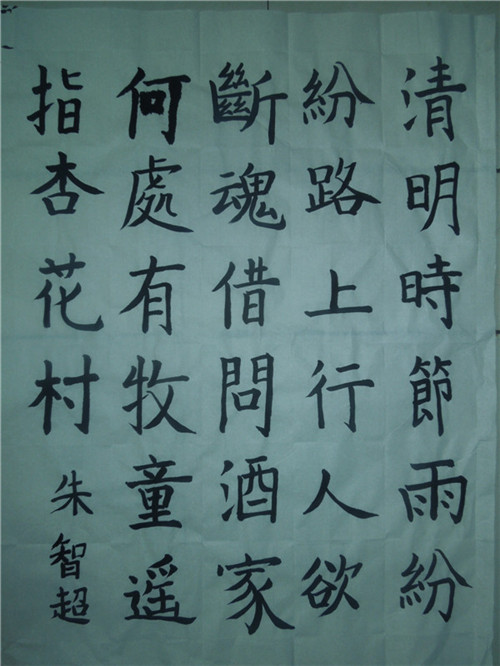 清明時節雨紛
紛路上行人欲
斷魂借問酒家
何處有牧童遥
指杏花村
朱智超